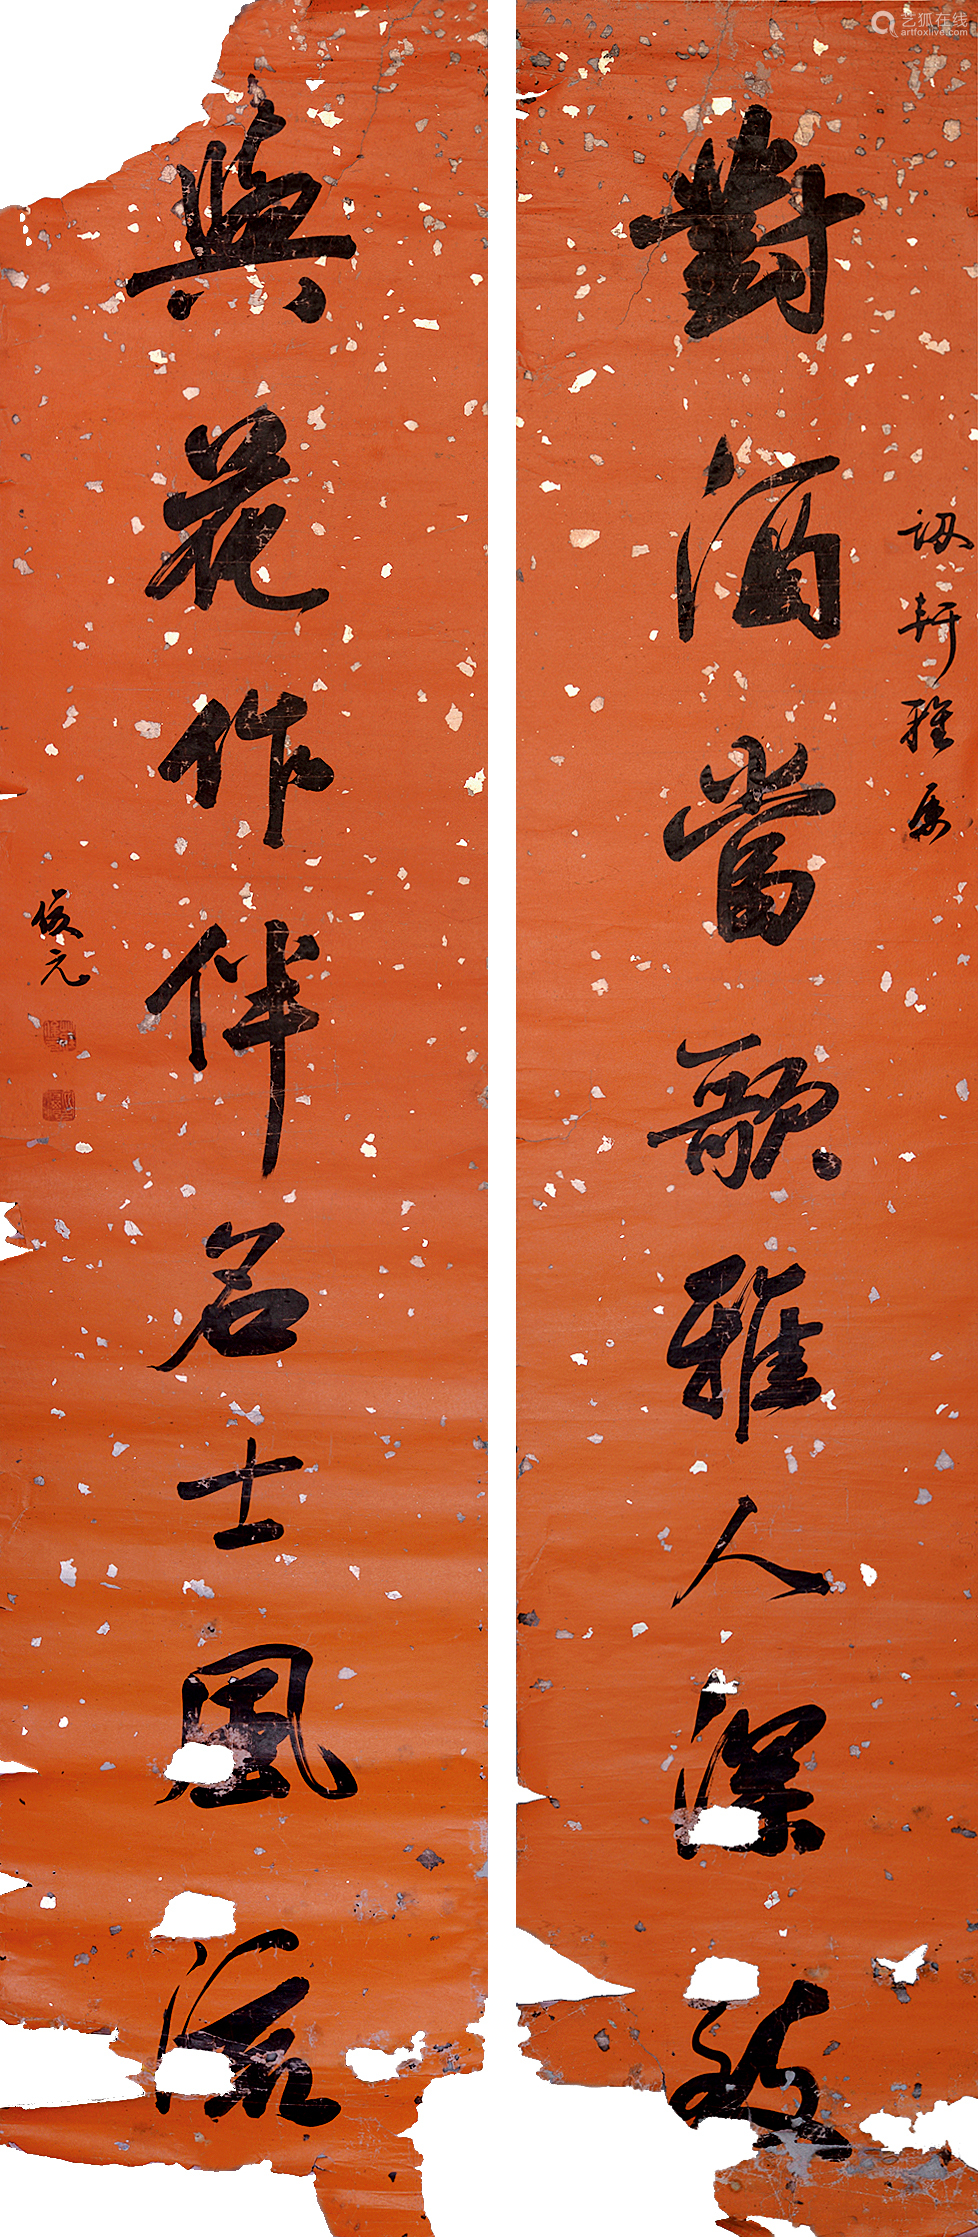 訒軒雅屬
對酒當歌雅人深致
與花作伴名士風流
俟元
艺狐在线
artfoxlive.com